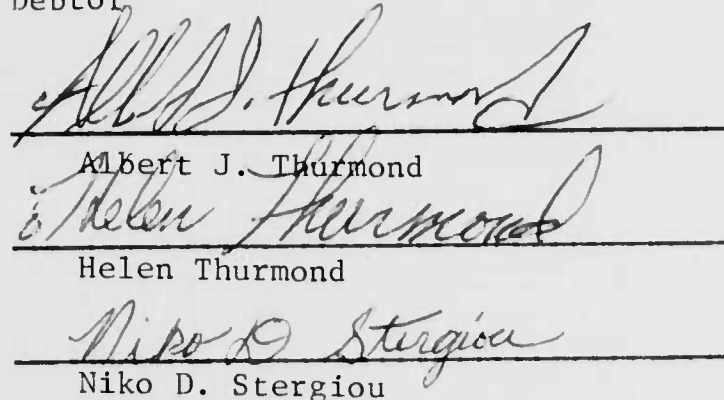 Debtor
Albert J. Thurmond
Albert J. Thurmond
Helen Thurmond
Helen Thurmond
Niko D Stergiou
Niko D. Stergiou